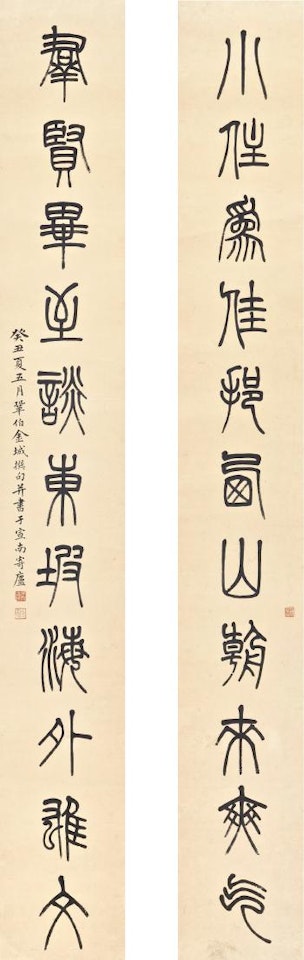 小住為佳挹西山朝來爽气
羣賢畢至談東坡海外雄文
癸丑夏五月鞏伯金城撰句并書于宣南寄廬